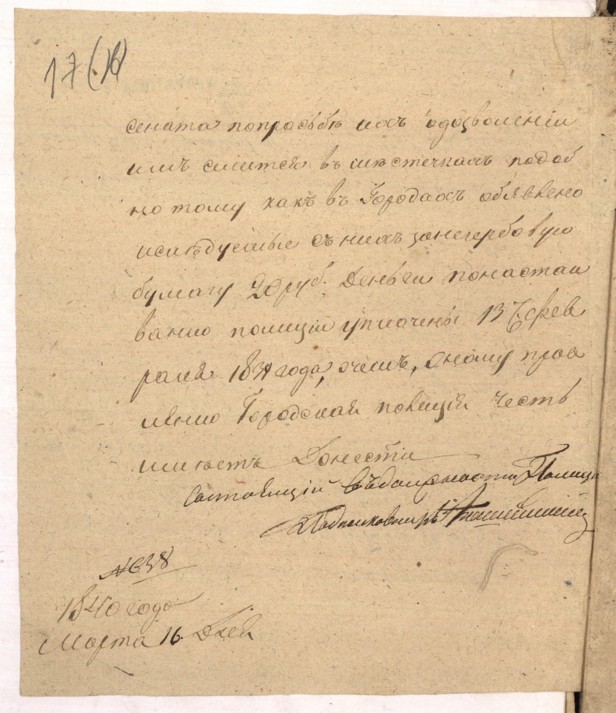 17 (16)
сената попросьбе ихъ одозволении
имъ селится въ местечкахъ подоб
но тому какъ въ Городахъ обявлено
иследуемые съ нихъ занегербовую
бумагу 20 руб. Деньги понастаи
ванию полиции уплочены 13 Фев
раля 1839 года, очемъ, оному прав
лению Городская полиция честь
имеетъ Донести
Состоящий въ должности Полиц
Подполковникъ
№ 638
1840 года
Марта 16 Дня